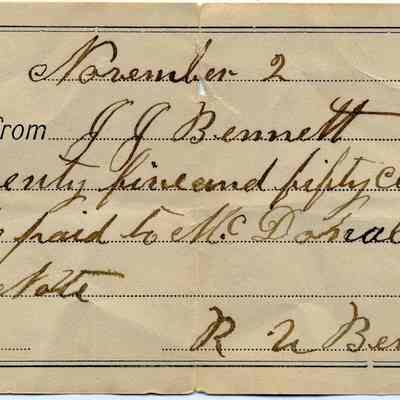 November 2
from J J Bennett
enty five and fifty c
paid to Mc Donal
Note
R U Ben